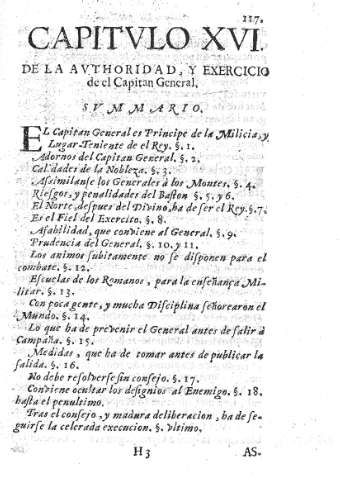 117.
CAPITVLO XVI.
DE LA AVTHORIDAD, Y EXERCICIO
de el Capitan General.
SVMMARIO.
EL Capitan General es Principe de la Milicia, y
Lugar-Teniente de el Rey. §. 1.
Adornos del Capitan General. §. 2.
Calidades de la Nobleza. §. 3.
Assimilanse los Generales à los Montes. §. 4.
Riesgos, y penalidades del Baston §. 5. y 6.
El Norte, despues del Divino, ha de ser el Rey. §. 7.
Es el Fiel del Exercito. §. 8.
Afabilidad, que conviene al General. §. 9.
Prudencia del General. §. 10. y 11.
Los animos subitamente no se disponen para el
combate. §. 12.
Escuelas de los Romanos, para la enseñança Mi-
litar. §. 13.
Con poca gente, y mucha Disciplina señorearon el
Mundo. §. 14.
Lo que ha de prevenir el General antes de salir à
Campaña. §. 15.
Medidas, que ha de tomar antes de publicar la
salida. §. 16.
No debe resolverse sin consejo. §. 17.
Conviene ocultar los designios al Enemigo. §. 18.
hasta el penultimo.
Tras el consejo, y madura deliberacion, ha de se-
guirse la celerada execucion. §. vltimo.
H 3 AS-